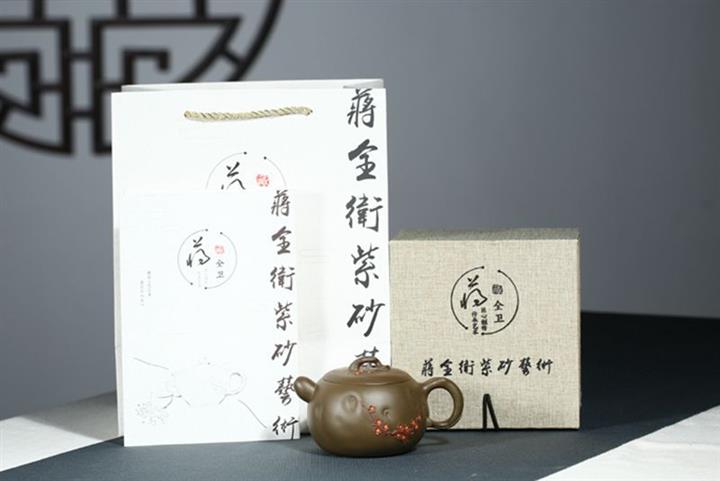 蔣全衛紫砂藝
蔣
蔣全衛紫砂藝術
蔣
全卫
蔣
全卫
蔣全衛紫砂藝術